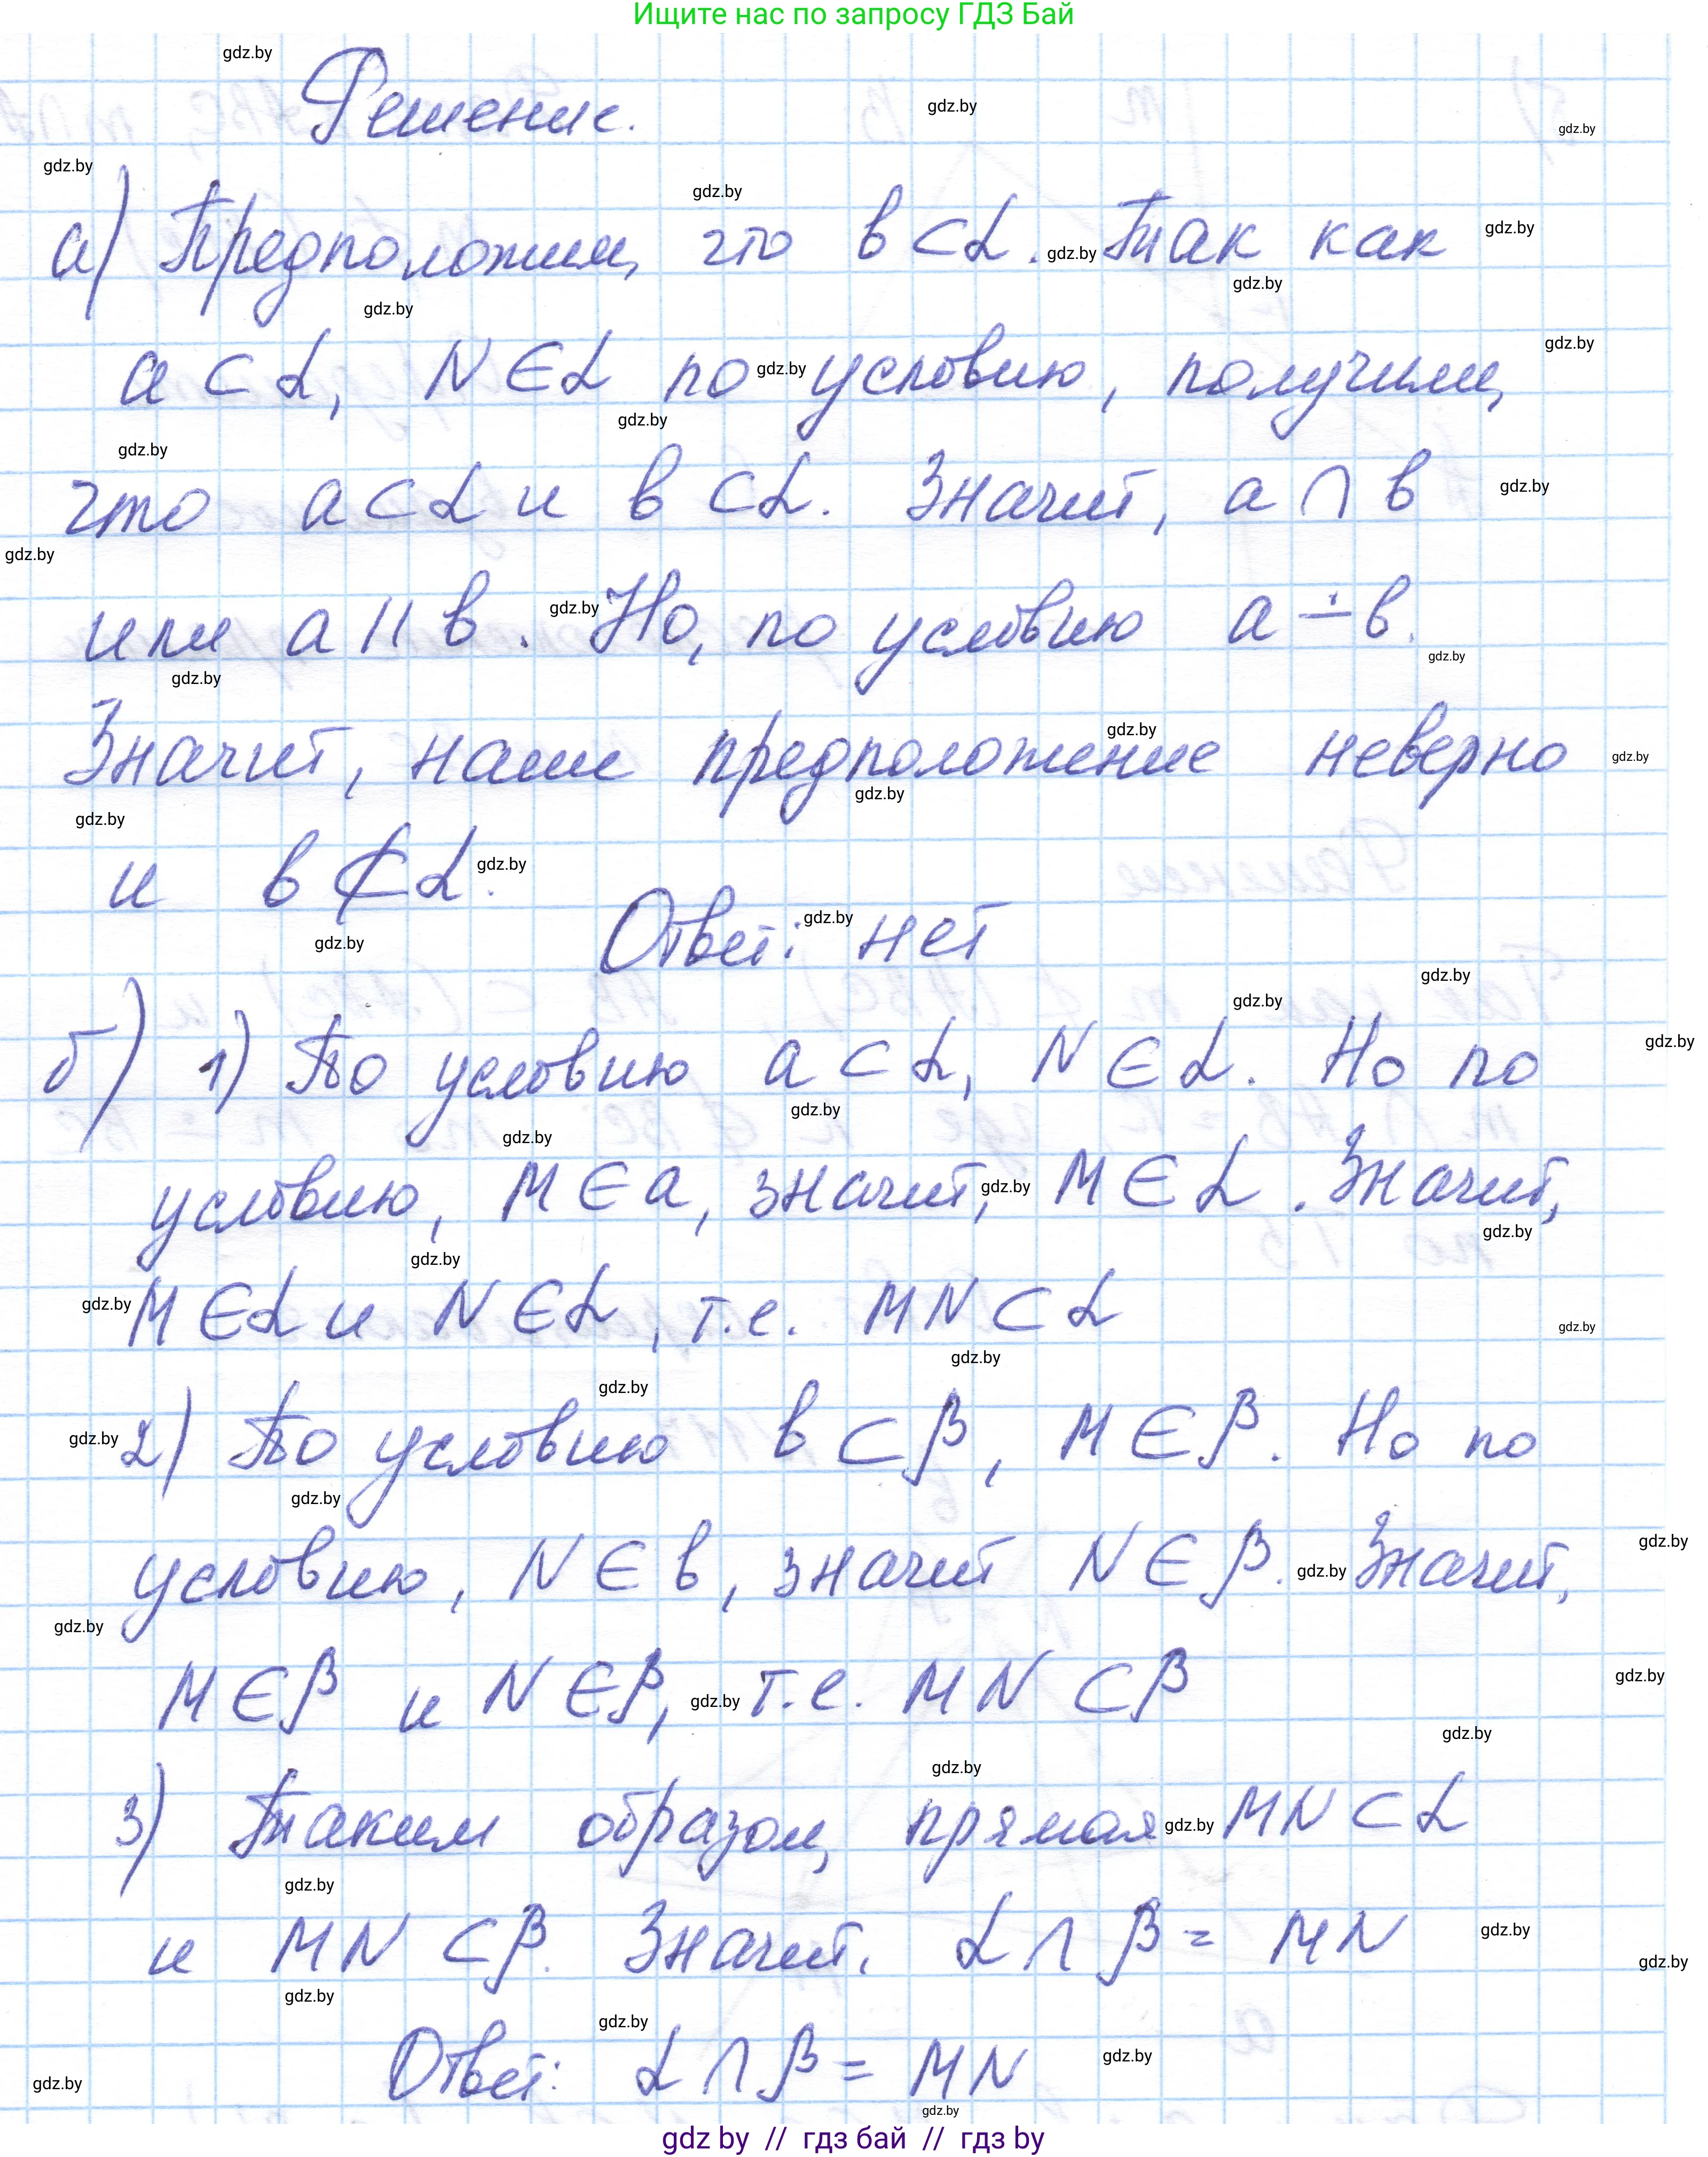 Ищите нас по запросу ГДЗ Бай
Решение.
а) Предположим, что в ⊂ α. Так как
а ⊂ α, N ∈ α по условию, получим,
что а ⊂ α и в ⊂ α. Значит, а ∩ в
или а || в. Но, по условию а ∸ в.
Значит, наше предположение неверно
и в ⊄ α.
Ответ: нет
б) 1) По условию а ⊂ α, N ∈ α. Но по
условию, M ∈ а, значит, M ∈ α. Значит,
M ∈ α и N ∈ α, т.е. MN ⊂ α
2) По условию в ⊂ β, M ∈ β. Но по
условию, N ∈ в, значит N ∈ β. Значит,
M ∈ β и N ∈ β, т.е. MN ⊂ β
3) Таким образом, прямая MN ⊂ α
и MN ⊂ β. Значит, α ∩ β = MN
Ответ: α ∩ β = MN
gdz by // гдз бай // гдз by